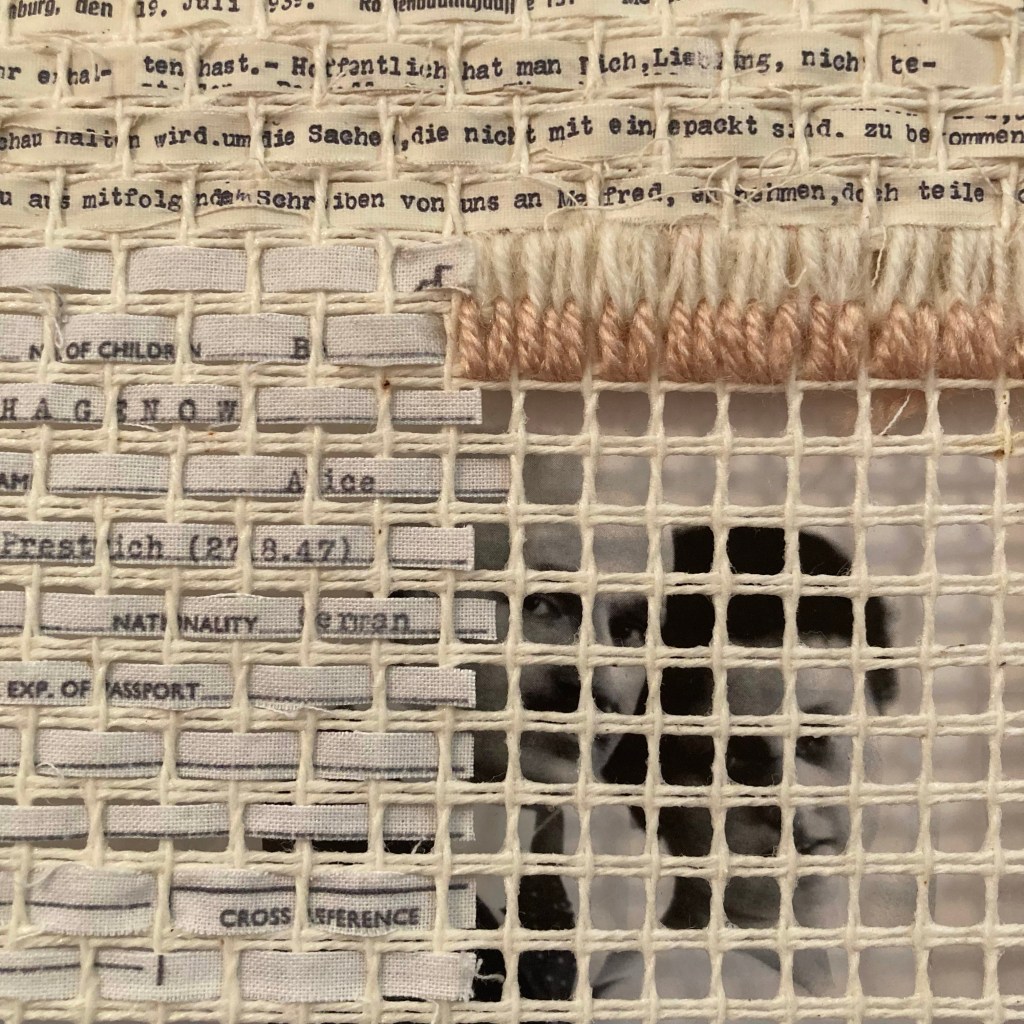 nburg, den 19. Juli 939.
hr e hal- ten hast.- Hoffentlich hat man Dich, Liebling, nich te-
chau halt n wird. um die Sache ,die nicht mit ein epackt sind. zu be ommen,
u aus mitfolg nden Schr iben von uns an Ma fred, en nehmen, doch teile
N OF CHILDR N B
HAGENOW
AM Alice
Prestwich (27.8.47)
NATIONALITY German
EXP. OF PASSPORT
CROSS REFERENCE